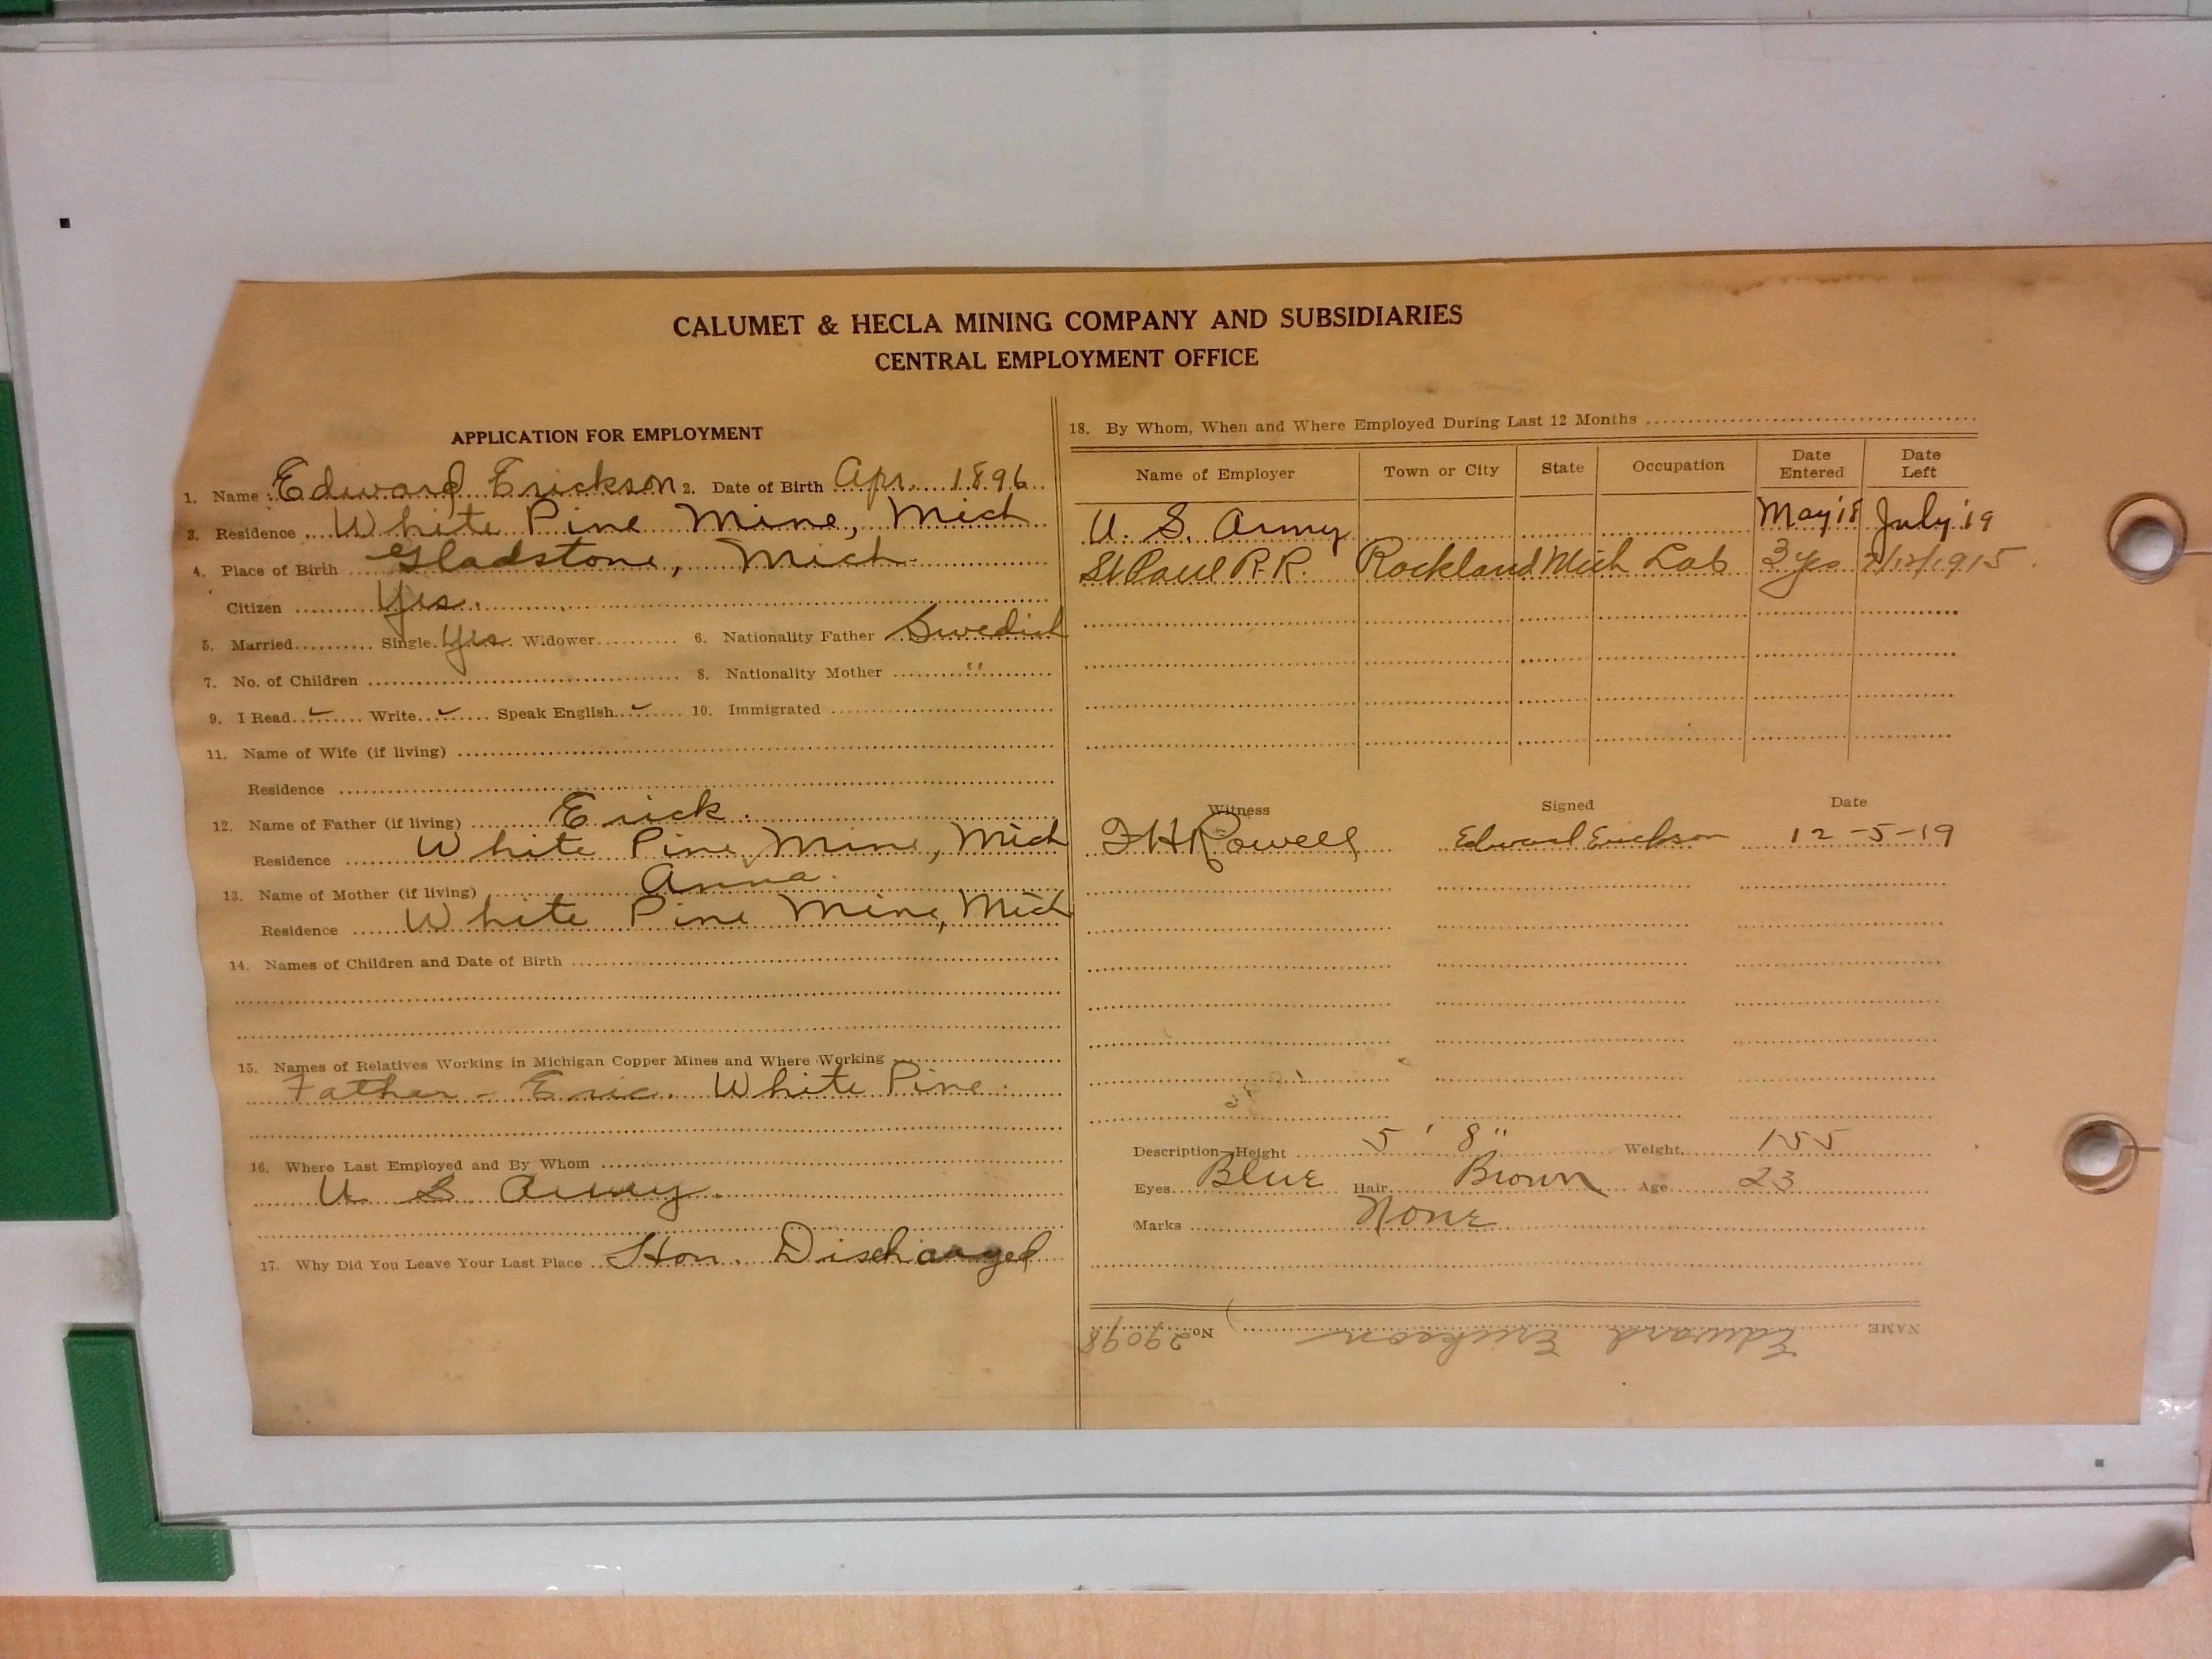 CALUMET & HECLA MINING COMPANY AND SUBSIDIARIES
CENTRAL EMPLOYMENT OFFICE
APPLICATION FOR EMPLOYMENT
1. Name Edward Erickson 2. Date of Birth Apr. 1896
3. Residence White Pine Mine, Mich
4. Place of Birth Gladstone, Mich.
Citizen Yes.
5. Married Single Yes Widower 6. Nationality Father Swedish
7. No. of Children 8. Nationality Mother "
9. I Read ✓ Write ✓ Speak English ✓ 10. Immigrated
11. Name of Wife (if living)
Residence
12. Name of Father (if living) Erick.
Residence White Pine Mine, Mich
13. Name of Mother (if living) Anna.
Residence White Pine Mine, Mich
14. Names of Children and Date of Birth
15. Names of Relatives Working in Michigan Copper Mines and Where Working
Father - Eric. White Pine.
16. Where Last Employed and By Whom
U S Army.
17. Why Did You Leave Your Last Place Hon. Discharged
18. By Whom, When and Where Employed During Last 12 Months
Name of Employer Town or City State Occupation Date Entered Date Left
U. S. Army May '18 July '19
St Paul R.R. Rockland Mich Lab 3 yrs /1915
Witness Signed Date
F H Rowell Edward Erickson 12-5-19
Description—Height 5' 8" Weight 155
Eyes Blue Hair Brown Age 23
Marks None
NAME Edward Erickson No. 29098